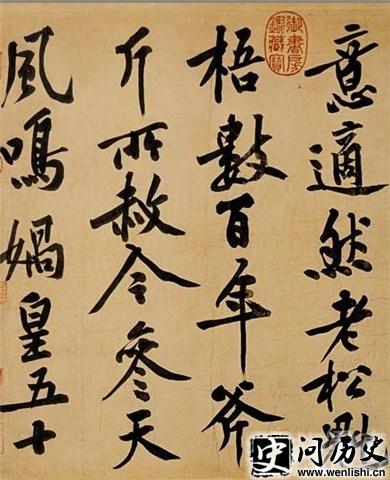 意適然老松魁
梧數百年斧
斤所赦今參天
風鳴媧皇五十
御書房鑑藏寶
问历史
www.wenlishi.com